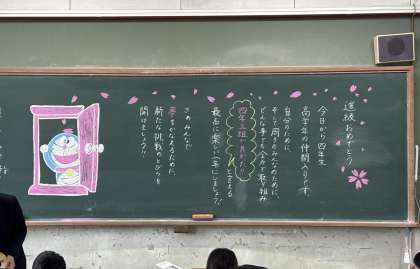 進級おめでとう
今日から四年生
高学年の仲間入りです。
自分のために、
そして周りのみんなのために、
どんな事でも全力で取り組み
四年三組
と言える
最高に楽しい一年にしましょう！
さあみんなで
夢をかなえるために、
新たな挑戦のとびらを
開けましょう！！